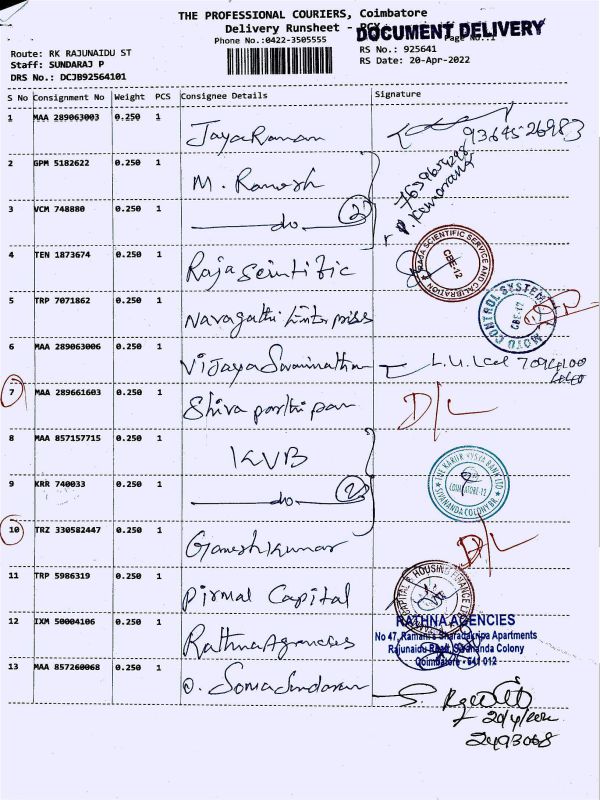 THE PROFESSIONAL COURIERS, Coimbatore
Delivery Runsheet - PCX
DOCUMENT DELIVERY
Phone No.:0422-3505555
Page No.:1
Route: RK RAJUNAIDU ST
RS No.: 925641
Staff: SUNDARAJ P
RS Date: 20-Apr-2022
DRS No.: DCJB92564101
S No Consignment No Weight PCS Consignee Details Signature
1 MAA 289063003 0.250 1 JayaRaman 93645 26983
2 GPM 5182622 0.250 1 M. Ramesh
3 VCM 748880 0.250 1 do (2) P. Kumaran
4 TEN 1873674 0.250 1 Raja Scintific RAJA SCIENTIFIC SERVICE AND CALIBRATION CBE-12
5 TRP 7071862 0.250 1 Navagathi Enterprises MOTO CONTROL SYSTEM CBE-12
6 MAA 289063006 0.250 1 Vijaya Swaminathan
7 MAA 289661603 0.250 1 Shiva parthipan D/L
8 MAA 857157715 0.250 1 KVB
9 KRR 740033 0.250 1 do (2) THE KARUR VYSYA BANK LTD COIMBATORE-12 SIVANANDA COLONY BR
10 TRZ 330582447 0.250 1 Ganesh Kumar D/L
11 TRP 5986319 0.250 1 Pirmal Capital CAPITAL & HOUSING FINANCE
12 IXM 50004106 0.250 1 Rathna Agencies
RATHNA AGENCIES
No 47, Ramani's Sharadakripa Apartments
Rajunaidu Road, Sivananda Colony
Coimbatore - 641 012
13 MAA 857260068 0.250 1 D. Soma Sundaram S.
20/4/2022
2493068